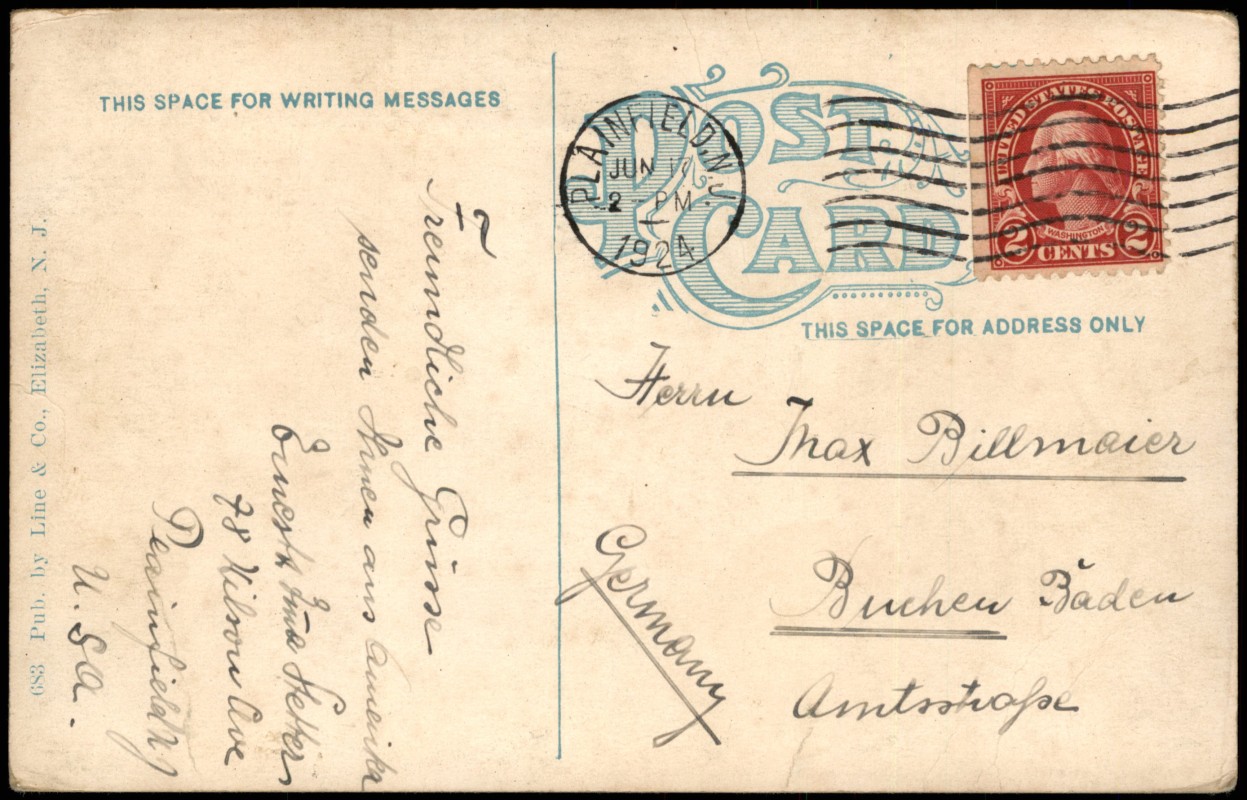 THIS SPACE FOR WRITING MESSAGES
POST CARD
PLAINFIELD, N.J.
JUN 17
2 PM
1924
UNITED STATES POSTAGE
WASHINGTON
2 CENTS 2
THIS SPACE FOR ADDRESS ONLY
Freundliche Grüsse
senden Ihnen aus Amerika
Ernest
78 Wilson Ave
Plainfield N J
U. S A.
Herrn
Max Billmaier
Buchen Baden
Amtsstraße
Germany
683 Pub. by Line & Co., Elizabeth, N. J.